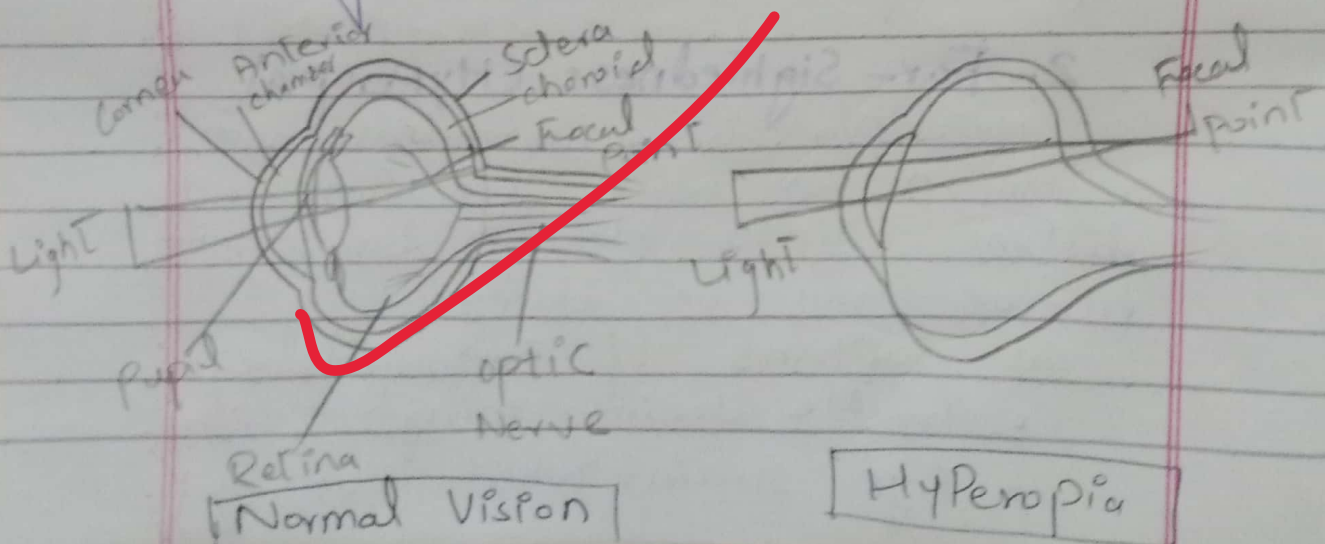 Anterior
chamber
Cornea
Sclera
choroid
Focal
Point
Light
Pupil
Retina
optic
Nerve
Normal Vision
Focal
Point
Light
HyPeropia